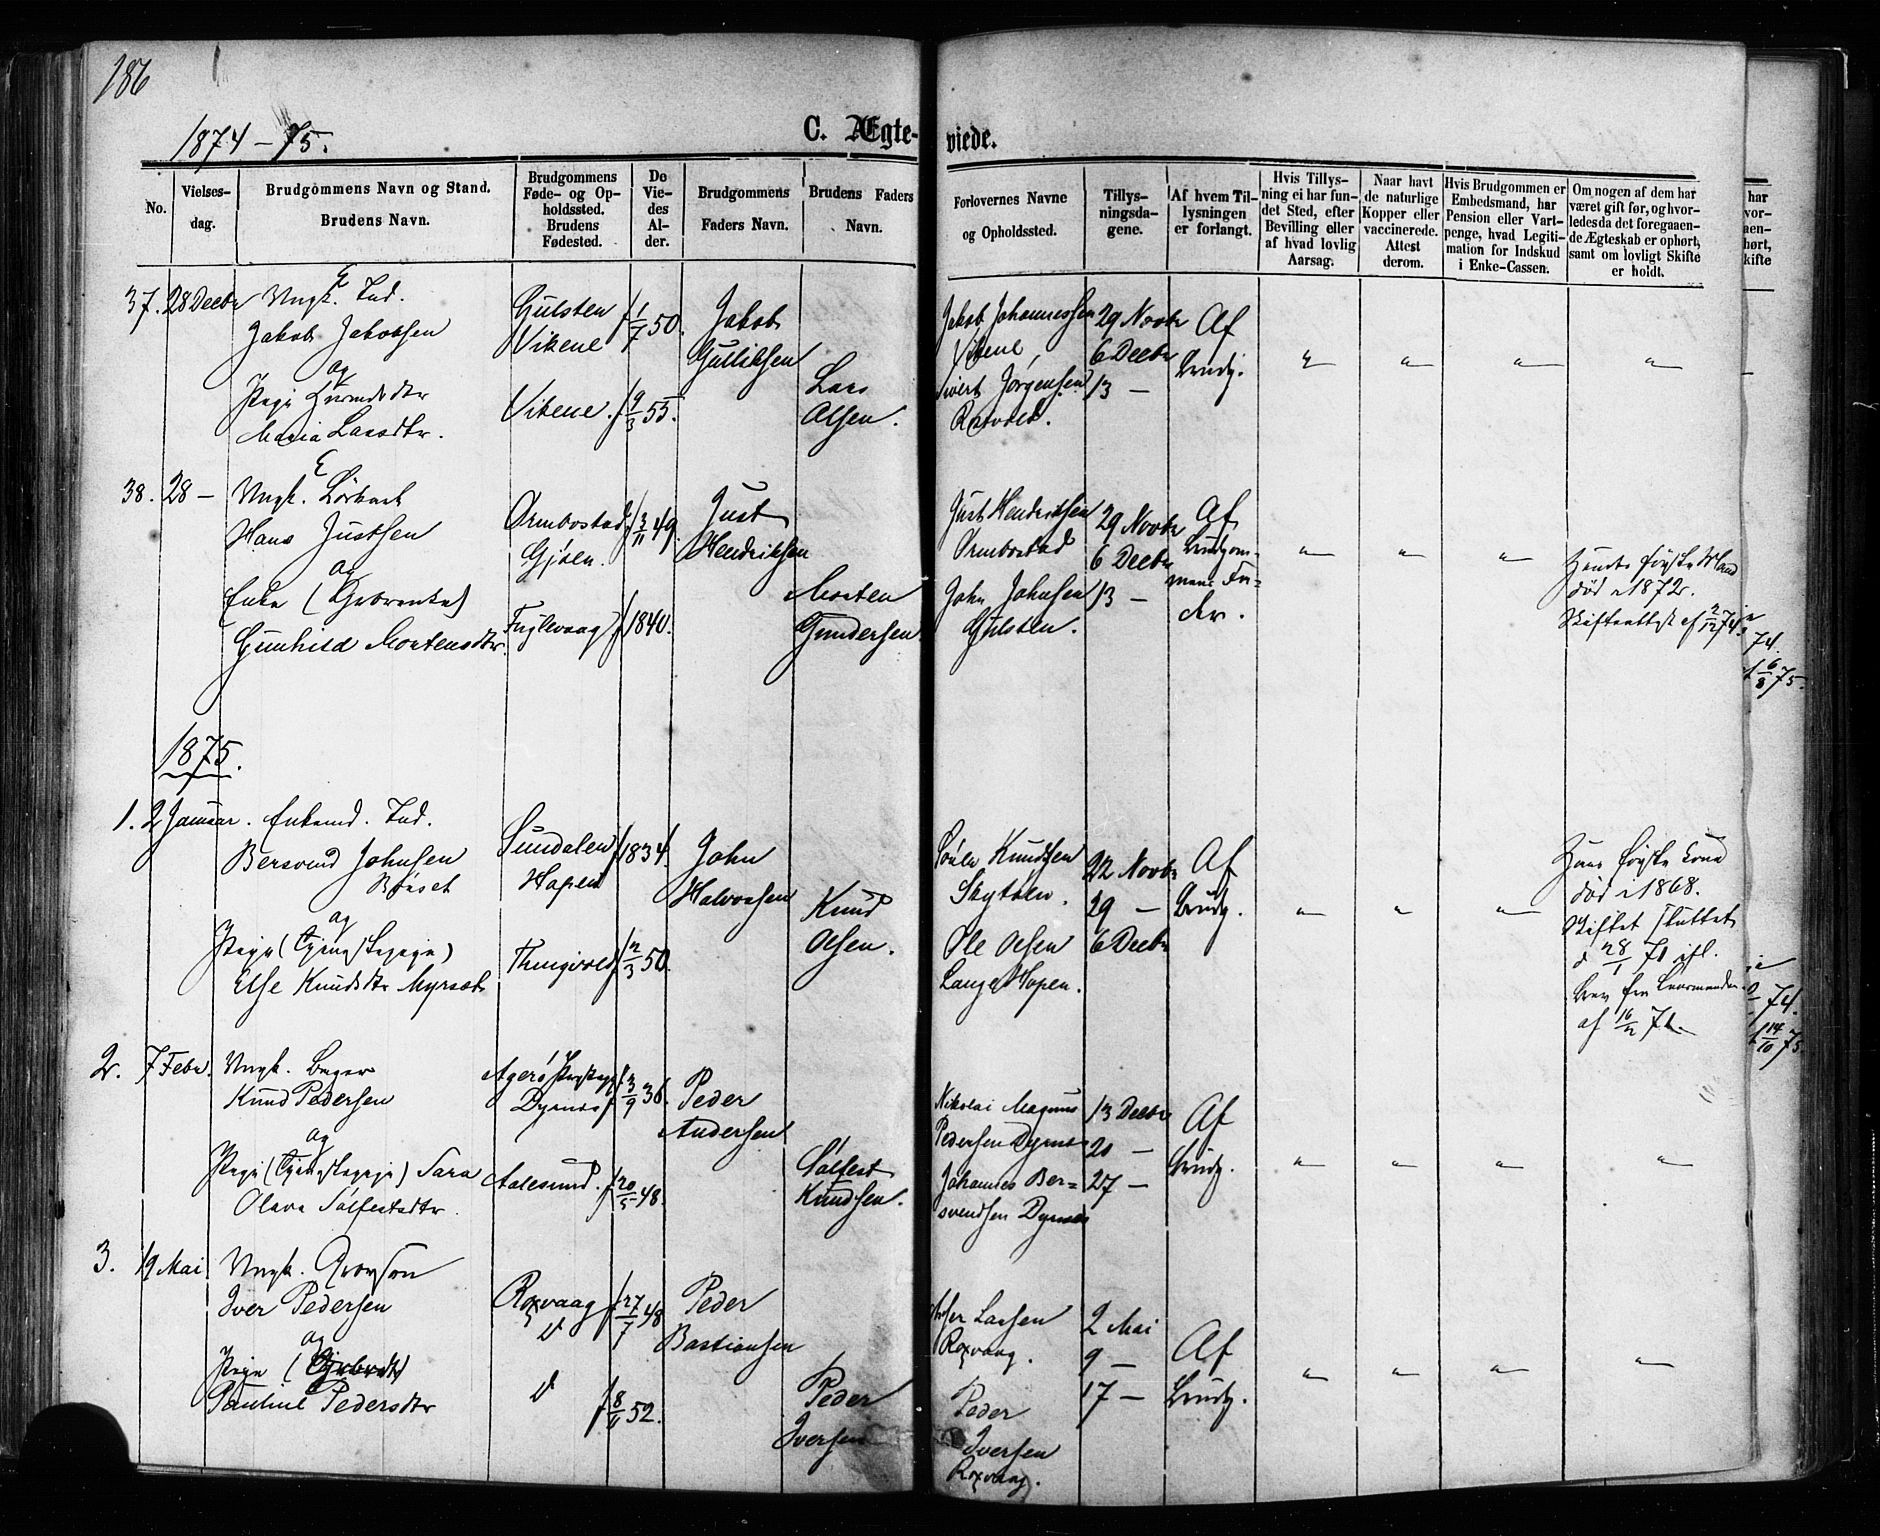 186
1874-75.
C. Ægteviede.
No.
Vielsesdag.
Brudgommens Navn og Stand.
Brudens Navn.
Brudgommens Føde- og Opholdssted. Brudens Fødested.
De Viedes Alder.
Brudgommens Faders Navn.
Brudens Faders Navn.
Forlovernes Navne og Opholdssted.
Tillysningsdagene.
Af hvem Tillysningen er forlangt.
Hvis Tillysning ei har fundet Sted, efter Bevilling eller af hvad lovlig Aarsag.
Naar havt de naturlige Kopper eller vaccinerede. Attest derom.
Hvis Brudgommen er Embedsmand, har Pension eller Vartpenge, hvad Legitimation for Indskud i Enke-Cassen.
Om nogen af dem har været gift før, og hvorledes da det foregaaende Ægteskab er ophørt, samt om lovligt Skifte er holdt.
37. 28 Decbr Ungk. Ind.
Jakob Jakobsen
og
Pige
Maria Larsdtr.
Gulsten
Vikene
Vikene.
f 1/7 50.
f 9/3 55.
Jakob
Gulliksen
Lars
Olsen.
Jakob Johannessen
Vikene
Sivert Jørgensen
29 Novbr
6 Decbr
13 —
Af
Brudg.
" " " "
38. 28 — Ungk.
Hans Justsen
og
Enke
Gunhild Mortensdtr.
Ormbostad
Gjølen.
Fuglevaag
f 3/11 49.
f 1840.
Just
Hendriksen
Morten
Gundersen
Just Hendriksen
Ormbostad
John Johnsen
Gulsten.
29 Novbr
6 Decbr
13 —
Af
Brudgommens Fader.
" " "
død i 1872.
Skifteattest af 2/12 74
1875.
1. 2 Januar. Enkemd. Ind.
Bersvend Johnsen
Bøset
og
Pige
Else Knudsdtr Myrset
Sundalen
Hopen
Thingvold
f 1834.
f 2/3 50.
John
Halvorsen
Knud
Olsen.
Knudsen
Skytølen.
Ole Olsen
Lange Hopen.
22 Novbr
29 —
6 Decbr
Af
Brudg.
" " "
Hans første Kone
død i 1868.
Skiftet sluttet
d 28/1 71 ifl.
Brev fra
af 16/2 71.
2. 7 Febr. Ungk.
Knud Pedersen
og
Pige Sara
Olava Sølfestsdtr.
Agerø
Dyrnes
Aalesund.
f 3/9 36.
f 20/5 48.
Peder
Andersen
Sølfest
Knudsen.
Nikolai Magnus
Pedersen Dyrnes
Johannes Bersvendsen Dyrnes
13 Decbr
20 —
27 —
Af
Brudg.
" " " "
3. 19 Mai Ungk.
Iver Pedersen
og
Pige
Pauline Pedersdtr
Roxvaag
f 27/7 48
f 8/11 52.
Peder
Bastiansen
Peder
Iversen
Larsen
Roxvaag.
Peder
Iversen
Roxvaag.
2 Mai
9 —
17 —
Af
Brudg.
" " " "
74.
6/8 75.
74.
14/10 75